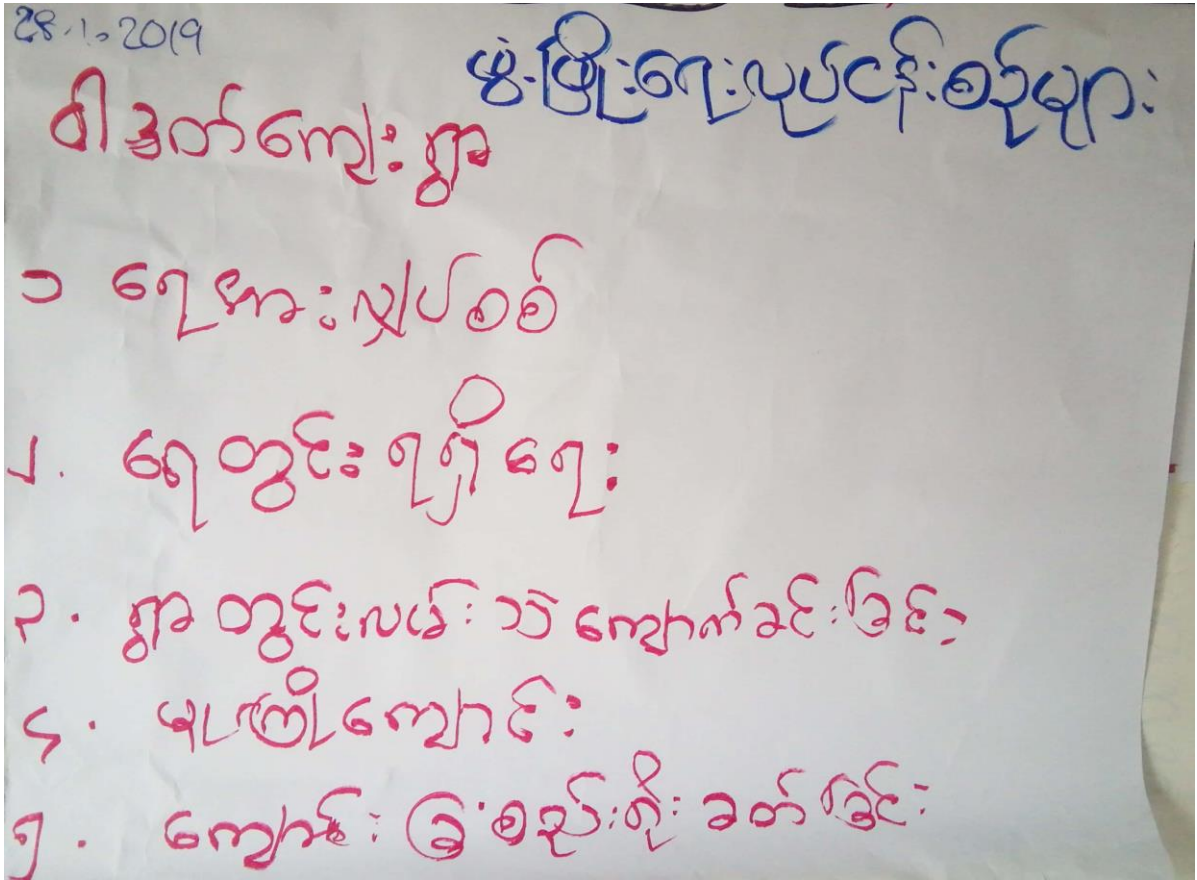 28.1.2019
ဖွံ့ဖြိုးရေးလုပ်ငန်းစဉ်များ
ဝါဒွတ်ကျေးရွာ
၁ ရေအားလျှပ်စစ်
၂. ရေတွင်းရရှိရေး
၃. ရွာတွင်းလမ်းသဲကျောက်ခင်းခြင်း
၄. မူ့ကြိုကျောင်း
၅. ကျောင်းခြံစည်းရိုးခတ်ခြင်း